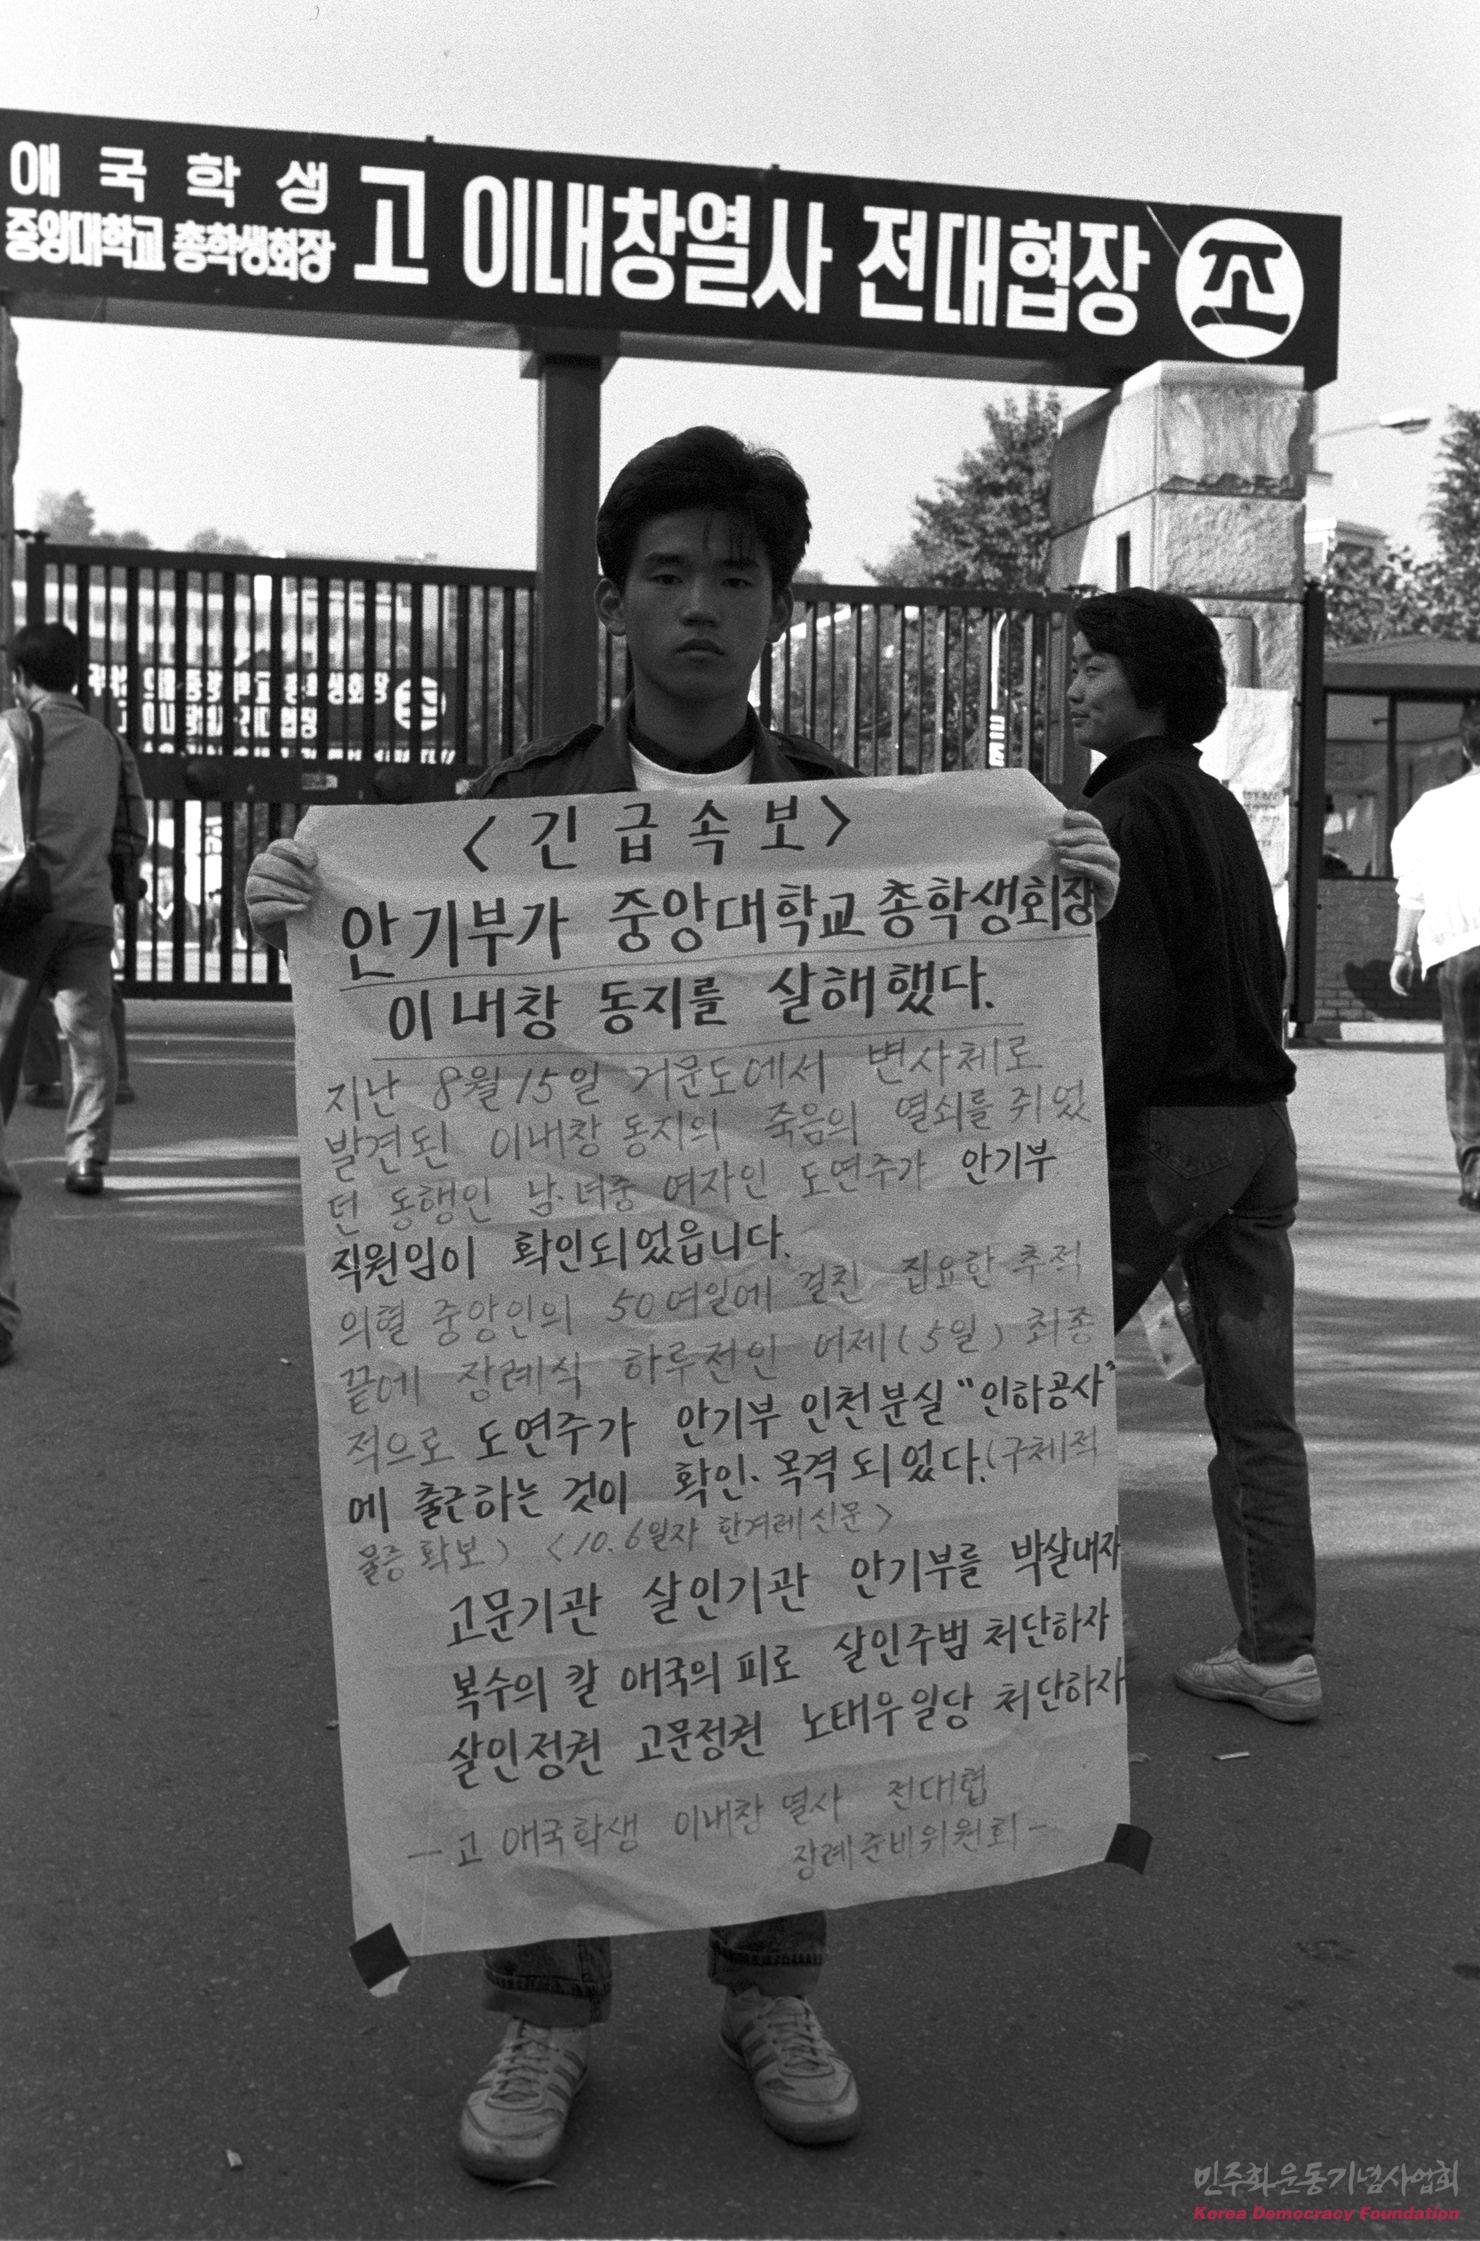 애국학생
중앙대학교 총학생회장
고 이내창열사 전대협장
조
<긴급속보>
안기부가 중앙대학교 총학생회장
이내창 동지를 살해했다.
지난 8월 15일 거문도에서 변사체로
발견된 이내창 동지의 죽음의 열쇠를 쥐었
던 동행인 남·녀중 여자인 도연주가 안기부
직원임이 확인되었읍니다.
의혈 중앙인의 50여일에 걸친 집요한 추적
끝에 장례식 하루전인 어제(5일) 최종
적으로 도연주가 안기부 인천분실 "인하공사"
에 출근하는 것이 확인·목격되었다.(구체적
물증 확보) <10.6일자 한겨레신문>
고문기관 살인기관 안기부를 박살내자
복수의 칼 애국의 피로 살인주범 처단하자
살인정권 고문정권 노태우일당 처단하자
-고 애국학생 이내창 열사 전대협
장례준비위원회-
민주화운동기념사업회
Korea Democracy Foundation